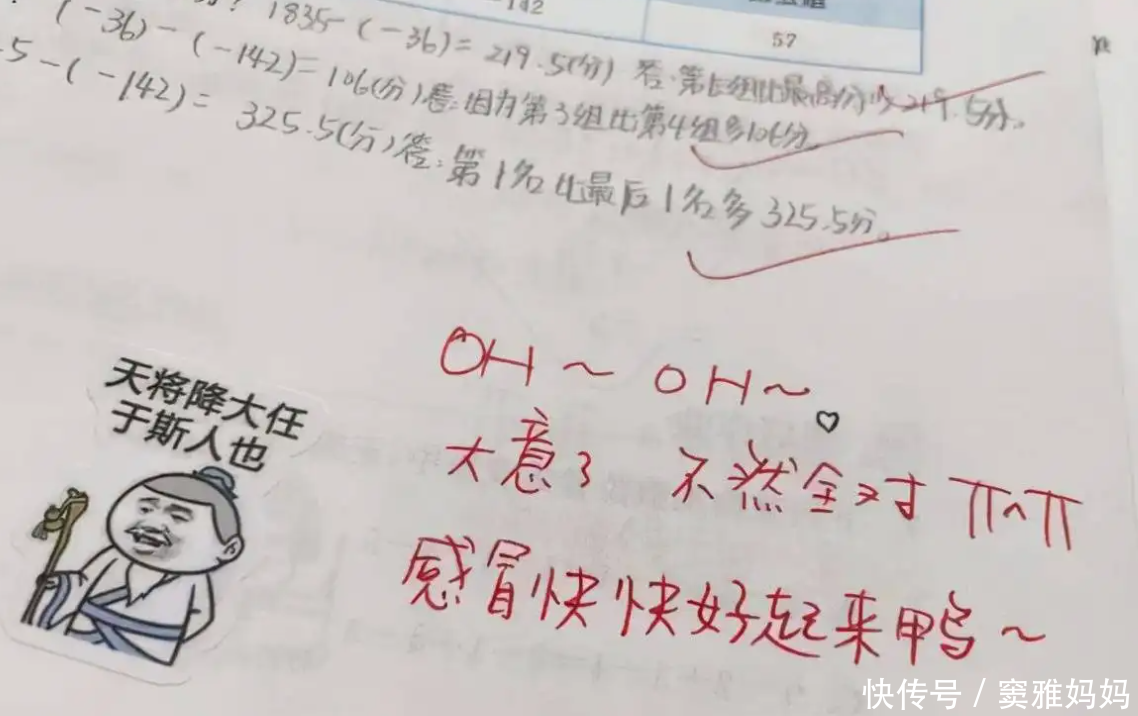 -142
57
1835-(-36)=219.5(分) 答:第七组比最高分少219.5分。
(-36)-(-142)=106(分)答:因为第3组比第4组多106分。
5-(-142)= 325.5(分)答:第1名比最后1名多325.5分。
OH~OH~
大意了 不然全对 π^π
感冒快快好起来鸭~
天将降大任
于斯人也
快传号 / 窦雅妈妈